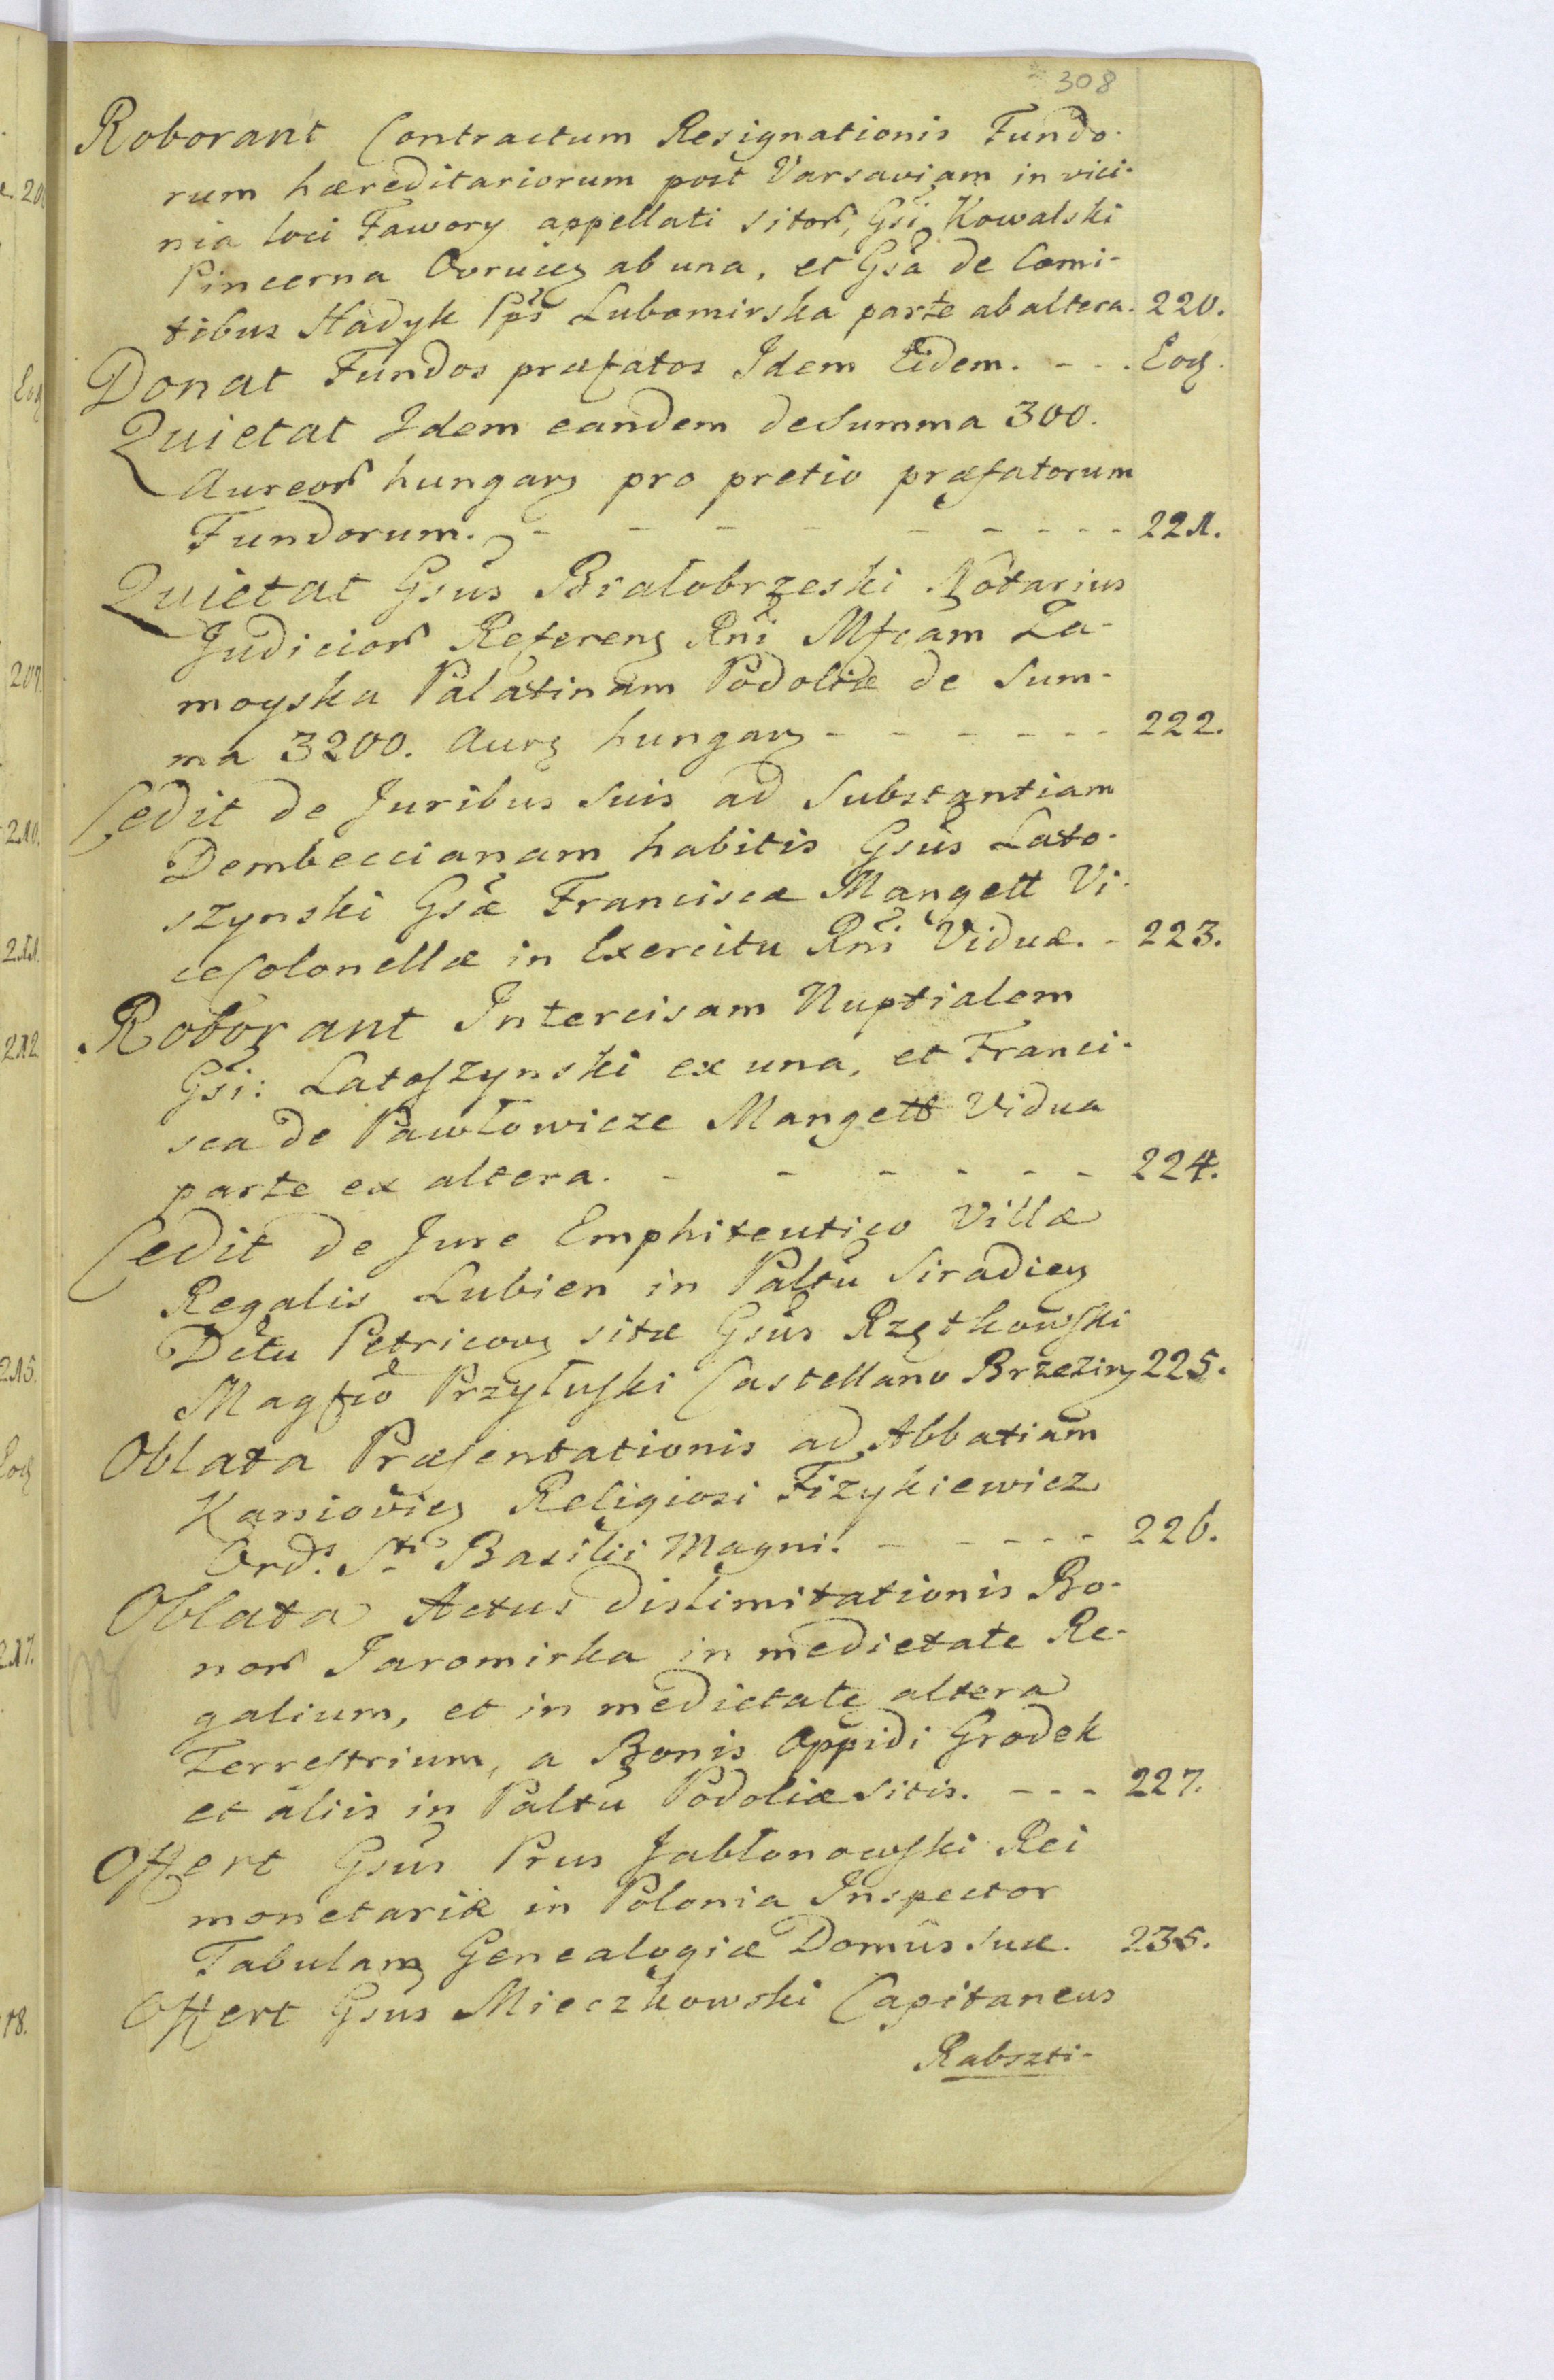 308
Roborant Contractum Resignationis Fundo-
rum hæreditariorum post Varsaviam in vici-
nia loci Fawory appellati sitor, Gsi Kowalski
Pincerna Ovruciẽ ab una, et Gsa de Comi-
tibus Hadyk Ppi Lubomirska parte ab altera. 220.
Donat Fundos præfatos Idem Eidem. - - . Eoď.
Quietat Idem eandem de Summa 300.
Aureor hungarz pro pretio præfatorum
Fundorum. - - - - - - - - - 221.
Quietat Gsus Białobrzeski Notarius
Judicior Referenz Rni Mfcam Za-
moyska Palatinam Podoliæ de Sum-
ma 3200. Aurz hungarz - - - - - - 222.
Cedit de Juribus suis ad Substantiam
Dembeccianam habitis Gsus Lato-
szynski Gsæ Franciscæ Mangett Vi-
ceColonellæ in Exercitu Rni Viduæ. - 223.
Roborant Intercisam Nuptialem
Gsi: Latoszynski ex una, et Franci-
sca de Pawłowicze Mangett Vidua
parte ex altera. - - - - - - - 224.
Cedit de Jure Emphiteutico Villæ
Regalis Lubien in Paltu Siradienz
Dctu Petricovz sitæ Gsus Rzętkowski
Magfco Przyłuski Castellano Brzezinz 225.
Oblata Præsentationis ad Abbatiam
Kanioviez Religiosi Fizykiewicz
Ord: Sti Basilii Magni. - - - - - 226.
Oblata Actus dislimitationis Bo-
nor Jaromirka in medietate Re-
galium, et in medietate altera
Terrestrium, a Bonis Oppidi Grodek
et aliis in Paltu Podoliæ sitis. - - - 227.
Offert Gsus Prus Jabłonowski Rei
monetariæ in Polonia Inspector
Tabulam Genealogiæ Domûs suæ. 235.
Offert Gsus Mieczkowski Capitaneus
Rabszti-